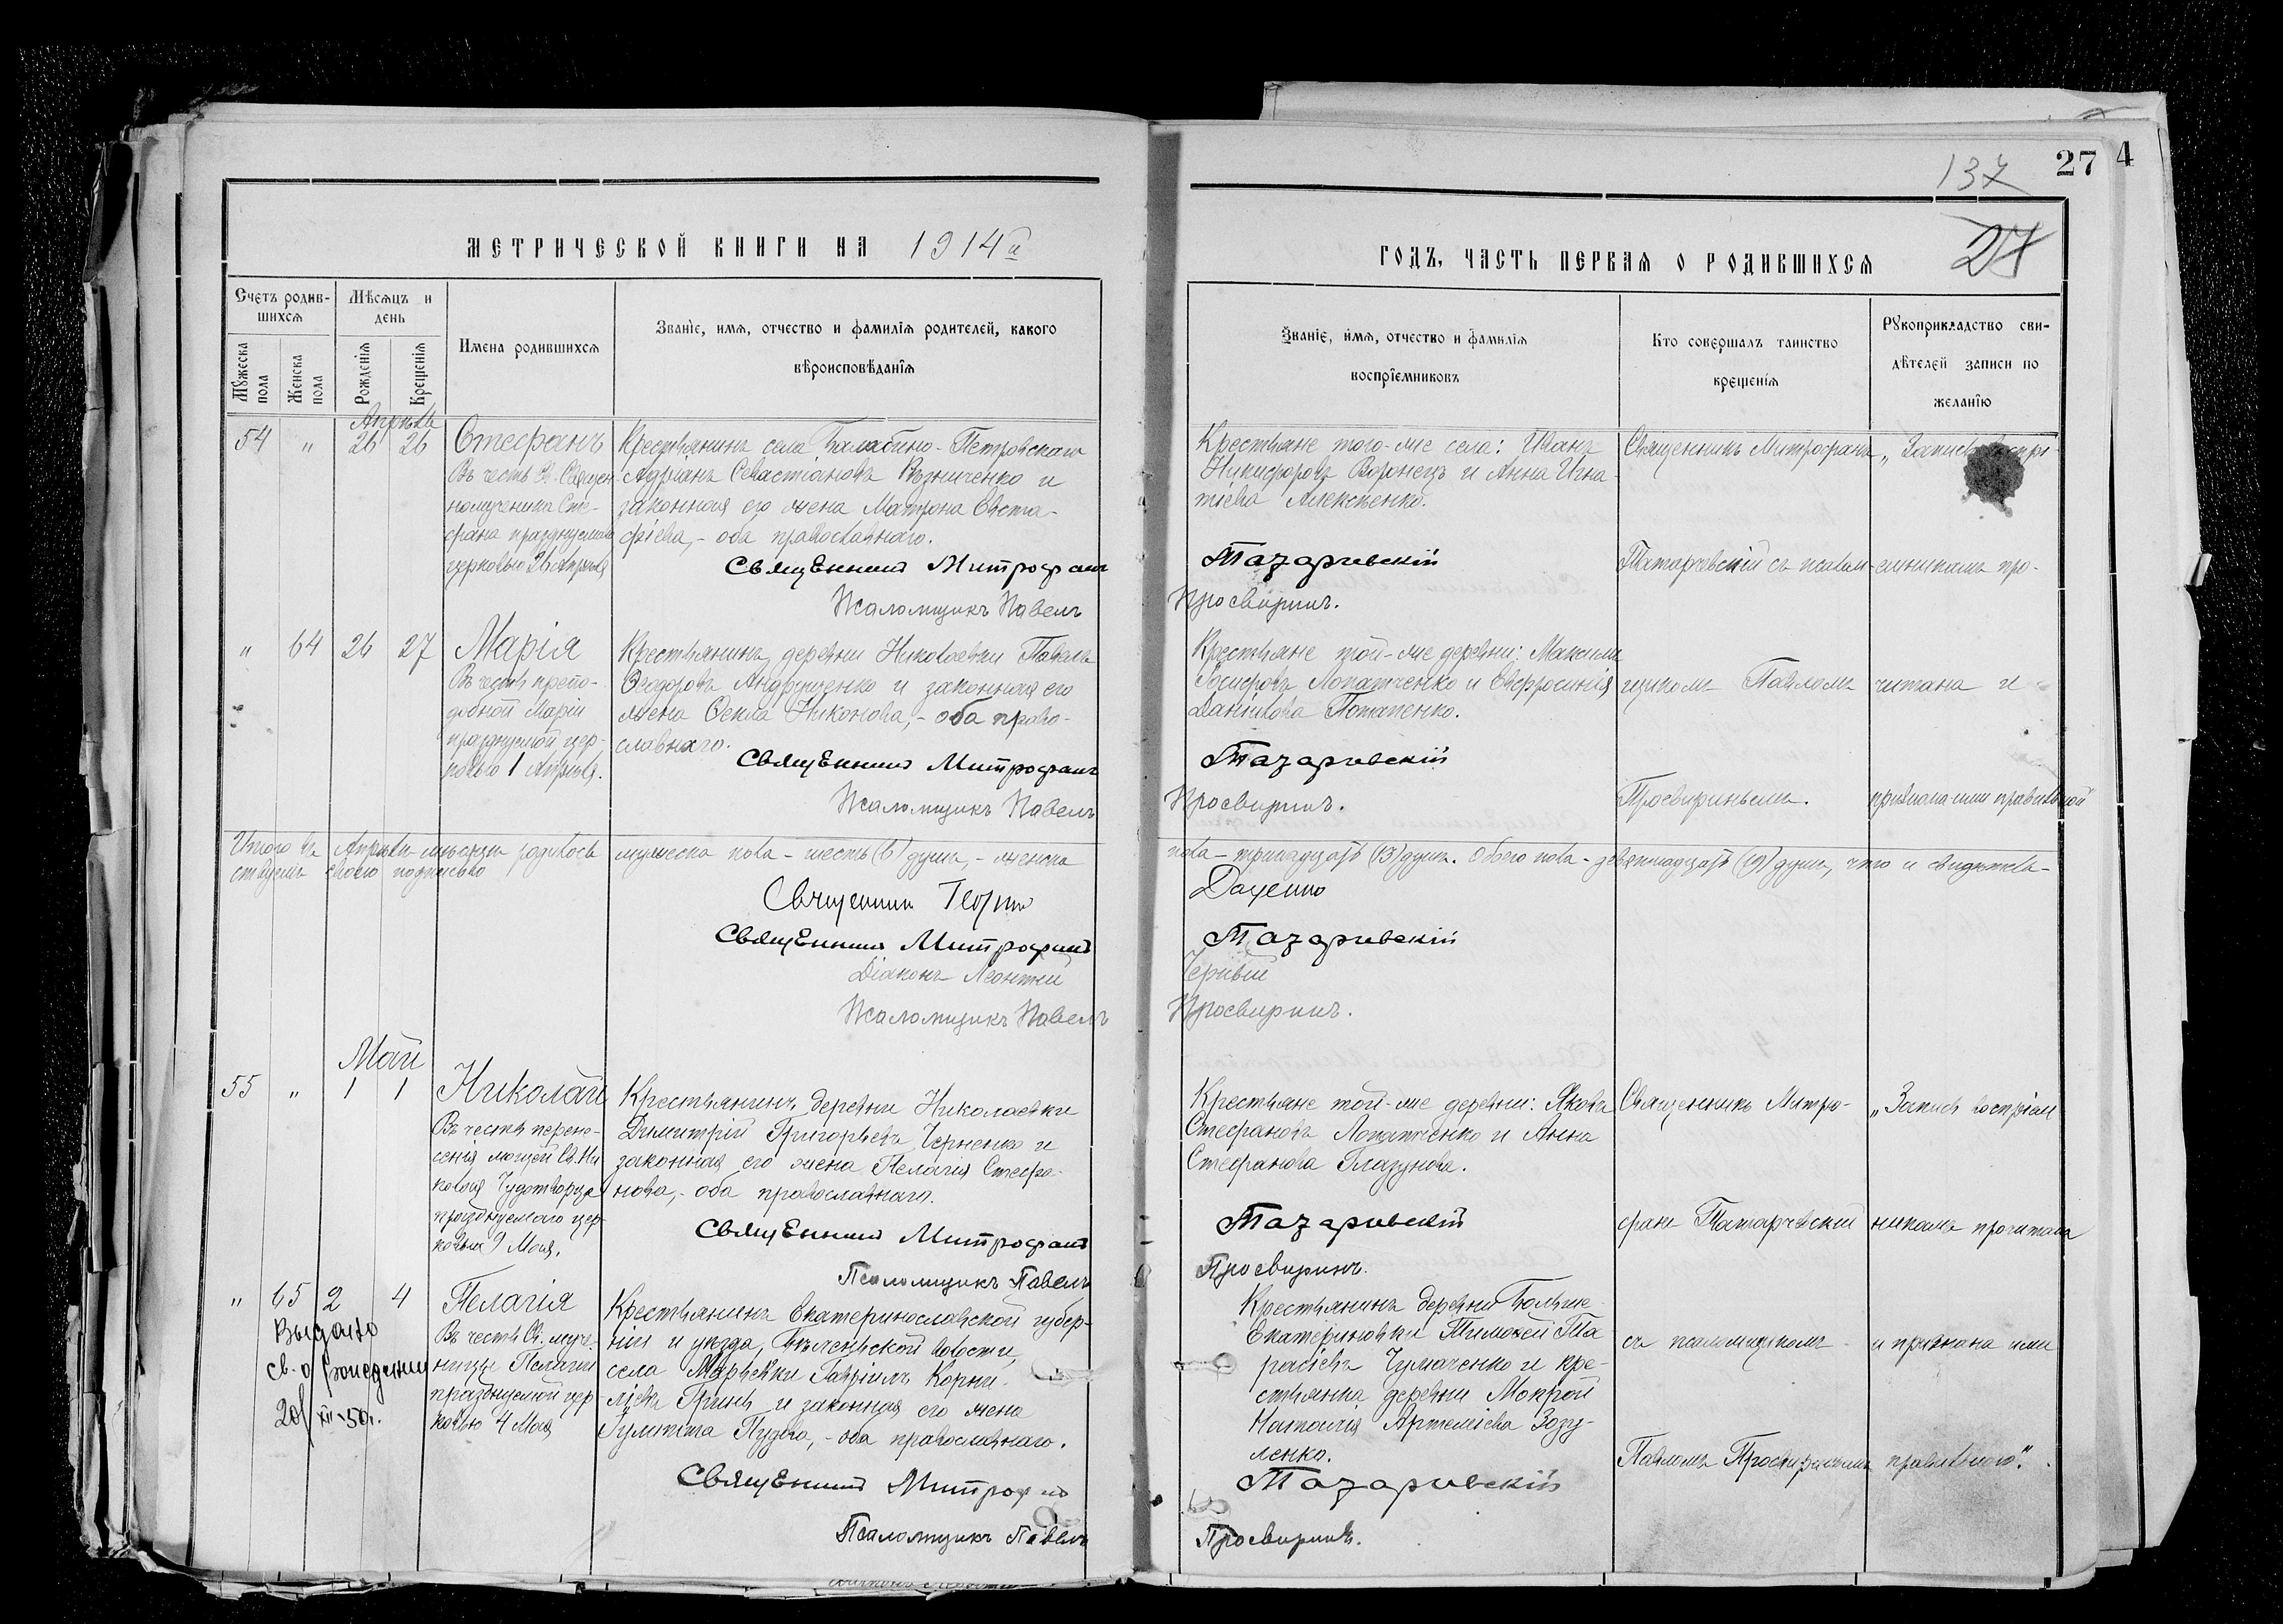 137
27 4
27
МЕТРИЧЕСКОЙ КНИГИ НА 1914й
ГОДЪ, ЧАСТЬ ПЕРВАЯ О РОДИВШИХСЯ
Счетъ родив-
шихся
Мужеска пола
Женска пола
Мѣсяцъ и
день
Рожденія
Крещенія
Имена родившихся
Званіе, имя, отчество и фамилія родителей, какого
вѣроисповѣданія
Званіе, имя, отчество и фамилія
воспріемниковъ
Кто совершалъ таинство
крещенія
Рукоприкладство сви-
дѣтелей записи по
желанію
Апрѣль
54 " 26 26
Стефанъ
Въ честь Св. Священ-
номученика Сте-
фана празднуемаго
церковью 26 Апрѣля
Крестьянинъ села Балабино-Петровскаго
Адріанъ Севастіановъ Вѣзниченко и
законная его жена Матрона Евста-
фіева, - оба православнаго.
Священникъ Митрофанъ
Псаломщикъ Павелъ
Крестьяне того-же села: Иванъ
Никифоровъ Воронецъ и Анна Игна-
тіева Алексѣенко.
Татаревскій
Просвиринъ.
Священникъ Митрофанъ
Татаревскій съ псалом-
"Запись воспрі-
емникамъ про-
" 64 26 27
Марія
Въ честь препо-
добной Маріи
празднуемой цер-
ковью 1 Апрѣля.
Крестьянинъ деревни Николаевки Павелъ
Ѳеодоровъ Андрущенко и законная его
жена Ѳекла Никонова, - оба право-
славнаго.
Священникъ Митрофанъ
Псаломщикъ Павелъ
Крестьяне той-же деревни: Максимъ
Іосифовъ Лопатченко и Евфросинія
Даниилова Потапенко.
Татаревскій
Просвиринъ.
щикомъ Павломъ
Просвиринымъ.
читана и
признана ими правильной
Итого въ Апрѣлѣ мѣсяцѣ родилось мужеска пола - шесть (6) душъ, - женска
пола - тринадцать (13) душъ. Обоего пола - девятнадцать (19) душъ, что и свидѣтель-
ствуемъ своею подписью
Священникъ Георгій
Даценко
Священникъ Митрофанъ
Татаревскій
Діаконъ Леонтій
Псаломщикъ Павелъ
Просвиринъ.
Май
55 " 1 1
Николай
Въ честь перене-
сенія мощей Св. Ни-
колая Чудотворца
празднуемаго цер-
ковью 9 Мая.
Крестьянинъ деревни Николаевки
Димитрій Григорьевъ Черненко и
законная его жена Пелагія Стефа-
нова, - оба православнаго.
Священникъ Митрофанъ
Псаломщикъ Павелъ
Крестьяне той-же деревни: Яковъ
Стефановъ Лопатченко и Анна
Стефанова Глазунова.
Татаревскій
Просвиринъ.
Священникъ Митро-
фанъ Татаревскій
"Запись воспріем
никамъ прочитана
" 65 2 4
Выдано
св. о рождении
20/XII-50г.
Пелагія
Въ честь Св. муче-
ницы Пелагіи
празднуемой цер-
ковью 4 Мая
Крестьянинъ Екатеринославской губер-
ніи и уѣзда, Бѣленьской волости,
села Марьевки Гавріилъ Корни-
ліевъ Гринь и законная его жена
Іулитта Пудова, - оба православнаго.
Священникъ Митрофанъ
Псаломщикъ Павелъ
Крестьянинъ деревни Больше-
Екатериновки Тимоѳей Та
расіевъ Чумаченко и кре-
стьянка деревни Мокрой
Наталія Артеміева Зозу-
ленко.
Татаревскій
Просвиринъ.
съ псаломщикомъ
Павломъ Просвиринымъ
и признана ими
правильною".